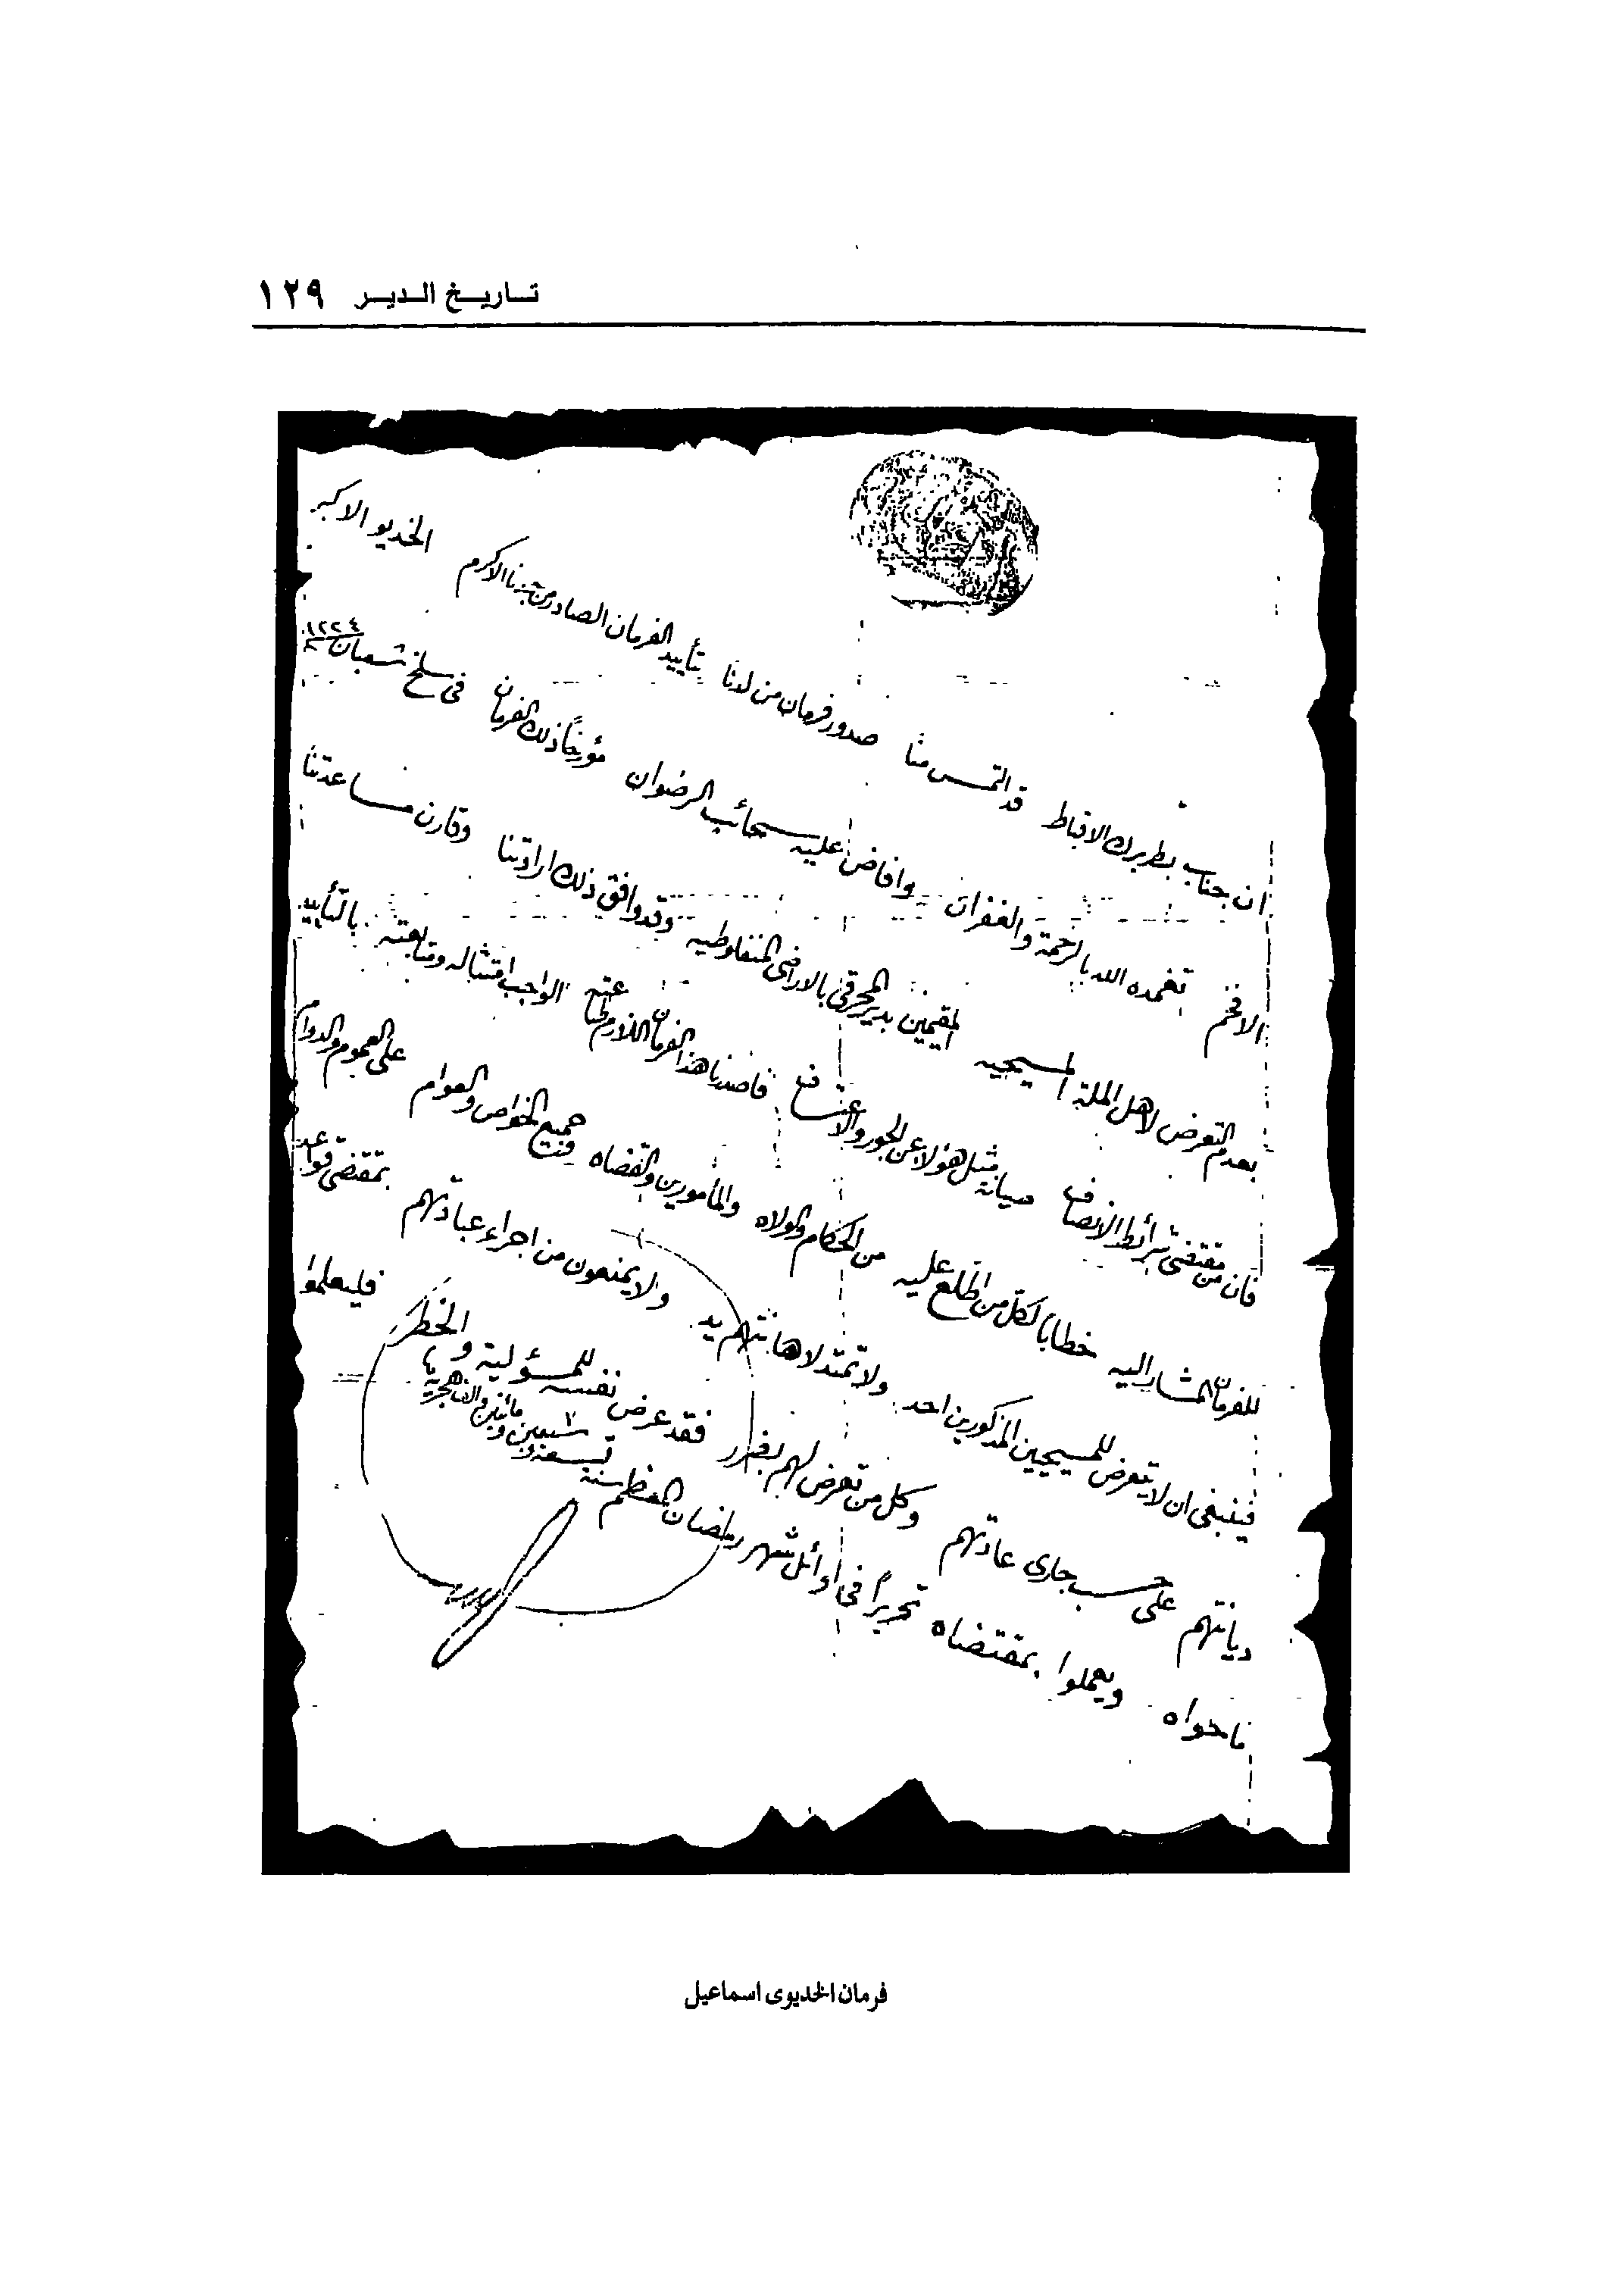 تاريخ الدير ١٢٩
ان جناب بطريرك الاقباط قد التمس منا صدور فرمان من لدنا بتأييد الفرمان الصادر من جدنا الاكرم الخديو الاكبر
الافخم تغمده الله بالرحمة والغفران وافاض عليه سحائب الرضوان مؤرخاً ذلك الفرمان فى سلخ شعبان
بعدم التعرض لاهل الملة المسيحيه المقيمين بدير المحرق بالاراضى المنفلوطيه وقد وافق ذلك ارادتنا وقارن مساعدتنا
فان من مقتضى شرائط الانصاف صيانة مثل هؤلاء عن الجور والاعتساف فاصدرنا هذا الفرمان اللازم طاعته الواجب امتثاله ومتابعته بالتأييد
للفرمان المشار اليه خطابا لكل من اطلع عليه من الحكام والولاه والمأمورين والقضاه وجميع الخواص والعوام على العموم والدوام
فينبغى ان لا يتعرض للمسيحيين المذكورين احد ولا تمتد لاهانتهم يد ولا يمنعون من اجراء عباداتهم بمقتضى قواعد
ديانتهم على حسب جارى عادتهم وكل من تعرض لهم بضرر فقد عرض نفسه للمسؤلية والخطر فليعلموا
ما حواه ويعملوا بمقتضاه تحريراً فى اوائل شهر رمضان المعظم سنة تسعة و سبعين ومائتين والف هجرية
فرمان الخديوى اسماعيل